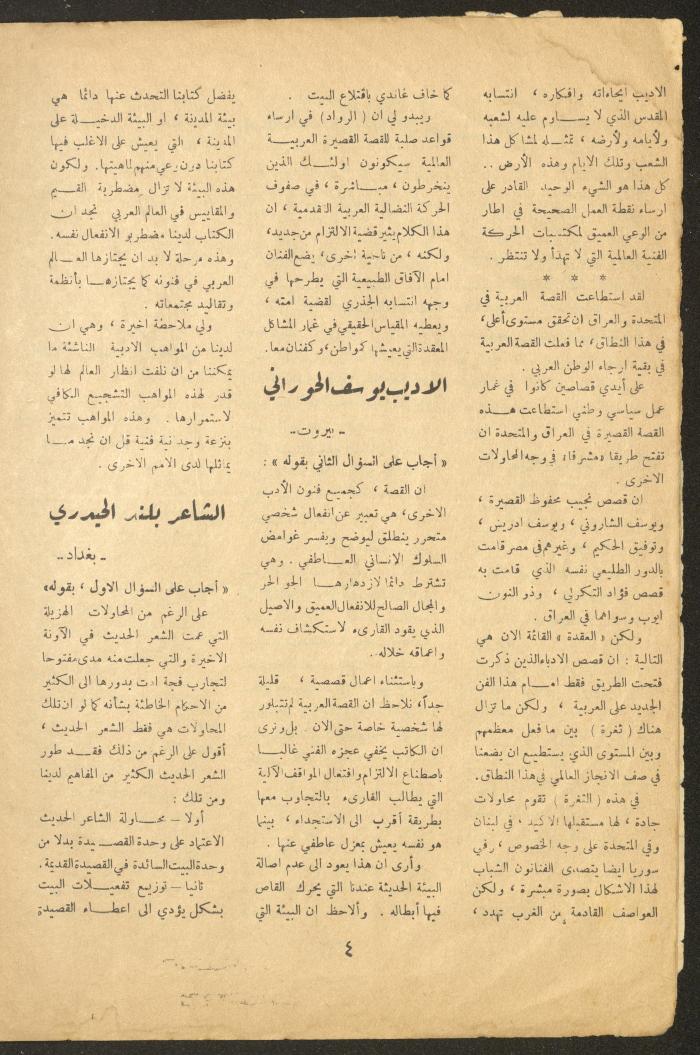 الاديب ايحاءاته وافكاره ، انتسابه
المقدس الذي لا يساوم عليه لشعبه
ولأيامه ولأرضه ، تمثله لمشاكل هذا
الشعب وتلك الايام وهذه الأرض ..
كل هذا هو الشيء الوحيد القادر على
ارساء نقطة العمل الصحيحة في اطار
من الوعي العميق لمكتسبات الحركة
الفنية العالمية التي لا تهدأ ولا تنتظر .
* * *
لقد استطاعت القصة العربية في
المتحدة والعراق ان تحقق مستوى أعلى،
في هذا النطاق، مما فعلت القصة العربية
في بقية ارجاء الوطن العربي .
على أيدي قصاصين كانوا في غمار
عمل سياسي وطني استطاعت هذه
القصة القصيرة في العراق والمتحدة ان
تفتح طريقا «مشرقا» في وجه المحاولات
الاخرى .
ان قصص نجيب محفوظ القصيرة ،
ويوسف الشاروني ، ويوسف ادريس ،
وتوفيق الحكيم ، وغيرهم في مصر قامت
بالدور الطليعي نفسه الذي قامت به
قصص فؤاد التكرلي ، وذو النون
ايوب وسواهما في العراق .
ولكن « العقدة » القائمة الان هي
التالية : ان قصص الادباء الذين ذكرت
فتحت الطريق فقط امام هذا الفن
الجديد على العربية ، ولكن ما تزال
هناك ( ثغرة ) بين ما فعل معظمهم
وبين المستوى الذي يستطيع ان يضعنا
في صف الانجاز العالمي في هذا النطاق.
في هذه ( الثغرة ) تقوم محاولات
جادة ، لها مستقبلها الاكيد ، في لبنان
وفي المتحدة على وجه الخصوص ، وفي
سوريا ايضا يتصدى الفنانون الشباب
لهذا الاشكال بصورة مبشرة ، ولكن
العواصف القادمة من الغرب تهدد ،
كما خاف غاندي باقتلاع البيت .
ويبدو لي ان ( الرواد ) في ارساء
قواعد صلبة للقصة القصيرة العربية
العالمية سيكونون اولئك الذين
ينخرطون ، مباشرة ، في صفوف
الحركة النضالية العربية التقدمية ، ان
هذا الكلام يثير قضية الالتزام من جديد،
ولكنه ، من ناحية اخرى، يضع الفنان
امام الآفاق الطبيعية التي يطرحها في
وجهه انتسابه الجذري لقضية امته ،
ويعطيه المقياس الحقيقي في غمار المشاكل
المعقدة التي يعيشها كمواطن، وكفنان معا.
الاديب يوسف الحوراني
- بيروت -
« أجاب على السؤال الثاني بقوله » :
ان القصة ، كجميع فنون الأدب
الاخرى، هي تعبير عن انفعال شخصي
متحرر ينطلق ليوضح ويفسر غوامض
السلوك الانساني العاطفي . وهي
تشترط دائما لازدهارها الجو الحر
والمجال الصالح للانفعال العميق والاصيل
الذي يقود القارىء لاستكشاف نفسه
واعماقه خلاله .
وباستثناء اعمال قصصية ، قليلة
جداً، نلاحظ ان القصة العربية لم تتبلور
لها شخصية خاصة حتى الان . بل ونرى
ان الكاتب يخفي عجزه الفني غالبا
باصطناع الالتزام وافتعال المواقف الآلية
التي يطالب القارىء بالتجاوب معها
بطريقة أقرب الى الاستجداء ، بينما
هو نفسه يعيش بمعزل عاطفي عنها .
وأرى ان هذا يعود الى عدم اصالة
البيئة الحديثة عندنا التي يحرك القاص
فيها أبطاله . وألاحظ ان البيئة التي
يفضل كتابنا التحدث عنها دائما هي
بيئة المدينة ، او البيئة الدخيلة على
المدينة ، التي يعيش على الاغلب فيها
كتابنا دون وعي منهم لماهيتها. ولكون
هذه البيئة لا تزال مضطربة القيم
والمقاييس في العالم العربي نجد ان
الكتاب لدينا مضطربو الانفعال نفسه.
وهذه مرحلة لا بد ان يجتازها العالم
العربي في فنونه كما يجتازها بأنظمة
وتقاليد مجتمعاته .
ولي ملاحظة اخيرة ، وهي ان
لدينا من المواهب الادبية الناشئة ما
يمكننا من ان نلفت انظار العالم لها لو
قدر لهذه المواهب التشجيع الكافي
لاستمرارها . وهذه المواهب تتميز
بنزعة وجدانية فنية قل ان نجد ما
يماثلها لدى الامم الاخرى .
الشاعر بلند الحيدري
- بغداد -
« أجاب على السؤال الاول ، بقوله»
على الرغم من المحاولات الهزيلة
التي عمت الشعر الحديث في الآونة
الاخيرة والتي جعلت منه مدى مفتوحا
لتجارب فجة ادت بدورها الى الكثير
من الاحكام الخاطئة بشأنه كما لو ان تلك
المحاولات هي فقط الشعر الحديث ،
أقول على الرغم من ذلك فقد طور
الشعر الحديث الكثير من المفاهيم لدينا
ومن تلك :
أولا – محاولة الشاعر الحديث
الاعتماد على وحدة القصيدة بدلا من
وحدة البيت السائدة في القصيدة القديمة.
ثانيا – توزيع تفعيلات البيت
بشكل يؤدي الى اعطاء القصيدة
٤